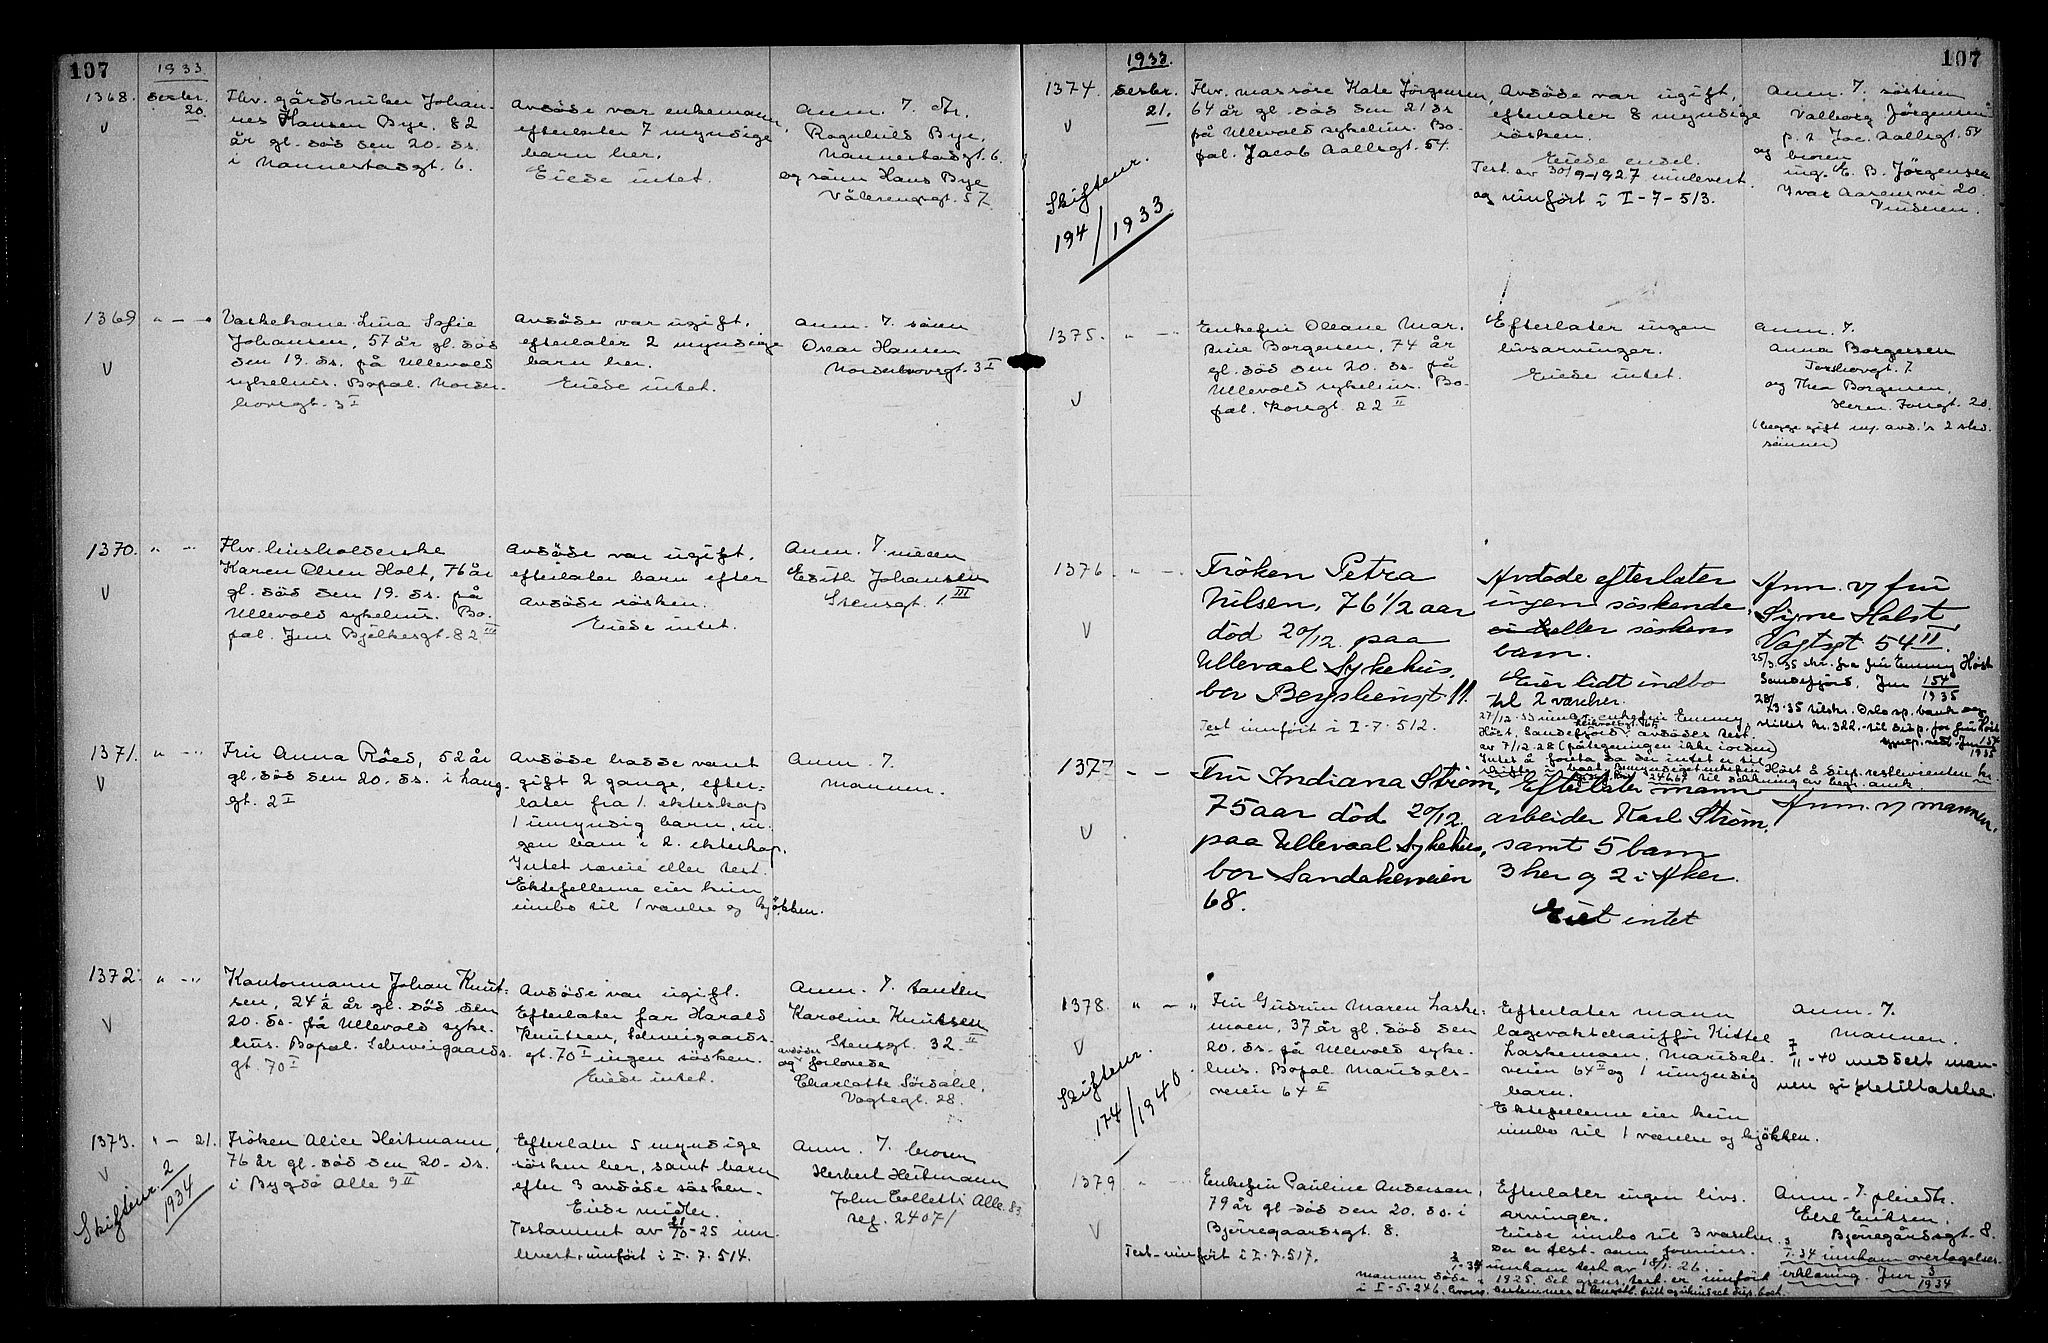 107
1933
1368. desbr. 20.
Fhv. gårdbruker Johan-
nes Hansen Bye, 82
år gl. død den 20. ds.
i Mannerhadsgt. 6.
Avdöde var enkemann,
efterlater 7 myndige
barn her.
Eiede intet.
Anm. v. dtr.
Ragnhild Bye,
og sönn Hans Bye
Vålerenggt. 57.
1369
Vaskekone Lina Sofie
Johansen, 57 år gl. död
den 19. ds. på Ullevold
sykehus. Bopæl. Norder-
hovsgt. 3 I
Avdöde var ugift,
efterlater 2 myndige
barn her.
Eiede intet.
Anm. v. sönn
Oscar Hansen
Norderhovsgt. 3 I
1370.
Fhv. husholderske
Karen Olsen Holt, 76 år
gl. död den 19. ds. på
Ullevold sykehus. Bo-
pæl. Jens Bjelkesgt. 82 III
Avdöde var ugift,
efterlater barn efter
avdöde sösken.
Eiede intet.
Anm. v. niesen
Edith Johansen
Stensgt. 1 III
1371.
Fru Anna Röed, 52 år
gl. död den 20. ds. i Lang-
gt. 2 I
Avdöde hadde vært
gift 2 gange, efter-
later fra 1. ekteskap
1 umyndig barn, in-
gen barn i 2. ekteskap.
Intet særeie eller test.
Ektefellerne eier kun
innbo til 1 værelse og kjökken.
Anm. v.
mannen.
1372.
Kontormann Johan Knut-
sen, 24 1/2 år gl. död den
20. ds. på Ullevold syke-
hus. Bopæl. Schweigaards-
gt. 70 I
Avdöde var ugift.
Efterlater far Harald
Knutsen, Schweigaards-
gt. 70 I ingen sösken.
Eiede intet.
Anm. v. tanten
Karoline Knutsen
Stensgt. 32. II
og avdødes forlovede
Charlotte Sördahl,
Vogtsgt. 28.
1373. 21.
Fröken Alice Heitmann,
76 år gl. död den 20. ds.
i Bygdö Alle 9 II
Efterlater 5 myndige
sösken her, samt barn
efter 3 avdöde sösken.
Eiede midler.
Testament av 21/10-25 inn-
levert, innfört i I. 7. 514.
Anm. v. broren
Herbert Heitmann
John Colletts Alle 83.
Tlf. 24071
Skiftenr. 2/1934
107
1933.
1374. desbr. 21.
Fhv. massöse Kate Jörgensen,
64 år gl. död den 21 ds
på Ullevold sykehus. Bo-
pæl. Jacob Aallsgt. 54.
Avdöde var ugift,
efterlater 8 myndige
sösken.
Eiede endel.
Test. av 30/9-1927 innlevert
og innfört i I-7-513.
Anm. v. søsteren
Valborg Jörgensen
p. t. Jac. Aallsgt. 54
og broren
ing. E. B. Jörgensen
Ivar Aasenvei 20
Vinderen.
Skiftenr.
194/1933
1375.
Enkefru Oleane Mar-
tine Borgersen, 74 år
gl. död den 20. ds. på
Ullevold sykehus. Bo-
pæl. Korsgt. 22 II
Efterlater ingen
livsarvinger.
Eiede intet.
Anm. v.
Anna Borgersen
Torshovgt. 7
og Thea Borgersen,
Herm. Fossgt. 20.
(begge gift m. avd.'s 2 sted-
sönner)
1376.
Fröken Petra
Nilsen, 76 1/2 aar
död 20/12 paa
Ullevaal Sykehus,
bor Bergsliensgt 11.
Test innfört i I-7-512.
Avdöde efterlater
ingen söskende
eller söskens
barn.
Eier lidt indbo
til 2 værelser.
27/12-33 innl. enkefru Emmy
Höst, Sandefjord avdödes test.
av 7/12.28 (påtegningen ikke iorden)
Anm. v/ fru
Signe Holst
Vogtsgt 54 II.
25/3.35 skr. fra fru Emmy Höst
Sandefjord. Jnr 154/1935
28/3-35 tilskr. Oslo sp. bank og
stillet kr. 322.- til disp. for fru Höst
Jnr 154/1935
1377
Fru Indiana Ström,
75 aar död 20/12
paa Ullevaal Sykehus,
bor Sandakerveien
68.
Efterlater mann
arbeider Karl Ström,
samt 5 barn
3 her og 2 i Aker.
Eiet intet
Anm. v/ mannen.
1378.
Fru Gudrun Maren Laske-
moen, 37 år gl. död den
20. ds. på Ullevold syke-
hus. Bopæl Maridals-
veien 64 II
Efterlater mann
lagevaktchauffør Kittel
Laskemoen, Maridals-
veien 64 II og 1 umyndig
barn.
Ektefellerne eier kun
innbo til 1 værelse og kjökken.
Anm. v.
mannen.
7/11-40 meddelt man-
nen giftetillatelse.
Skiftenr.
174/1940
1379
Enkefru Pauline Andersen,
79 år gl. död den 20. ds. i
Bjerregaardsgt. 8.
Test. innfört i I. 7. 517.
Efterlater ingen livs-
arvinger.
Eiede innbo til 3 værelser.
Der er test. som finnes.
3/1-34 innkom test av 18/1.26.
mannen döde i 1925. test er innført
i I-5-246.
Anm. v. pleiedtr.
Else Eriksen,
Bjerregårdsgt. 8.
3/1.34 innkom overtagelses-
erklæring. Jnr 3/1934